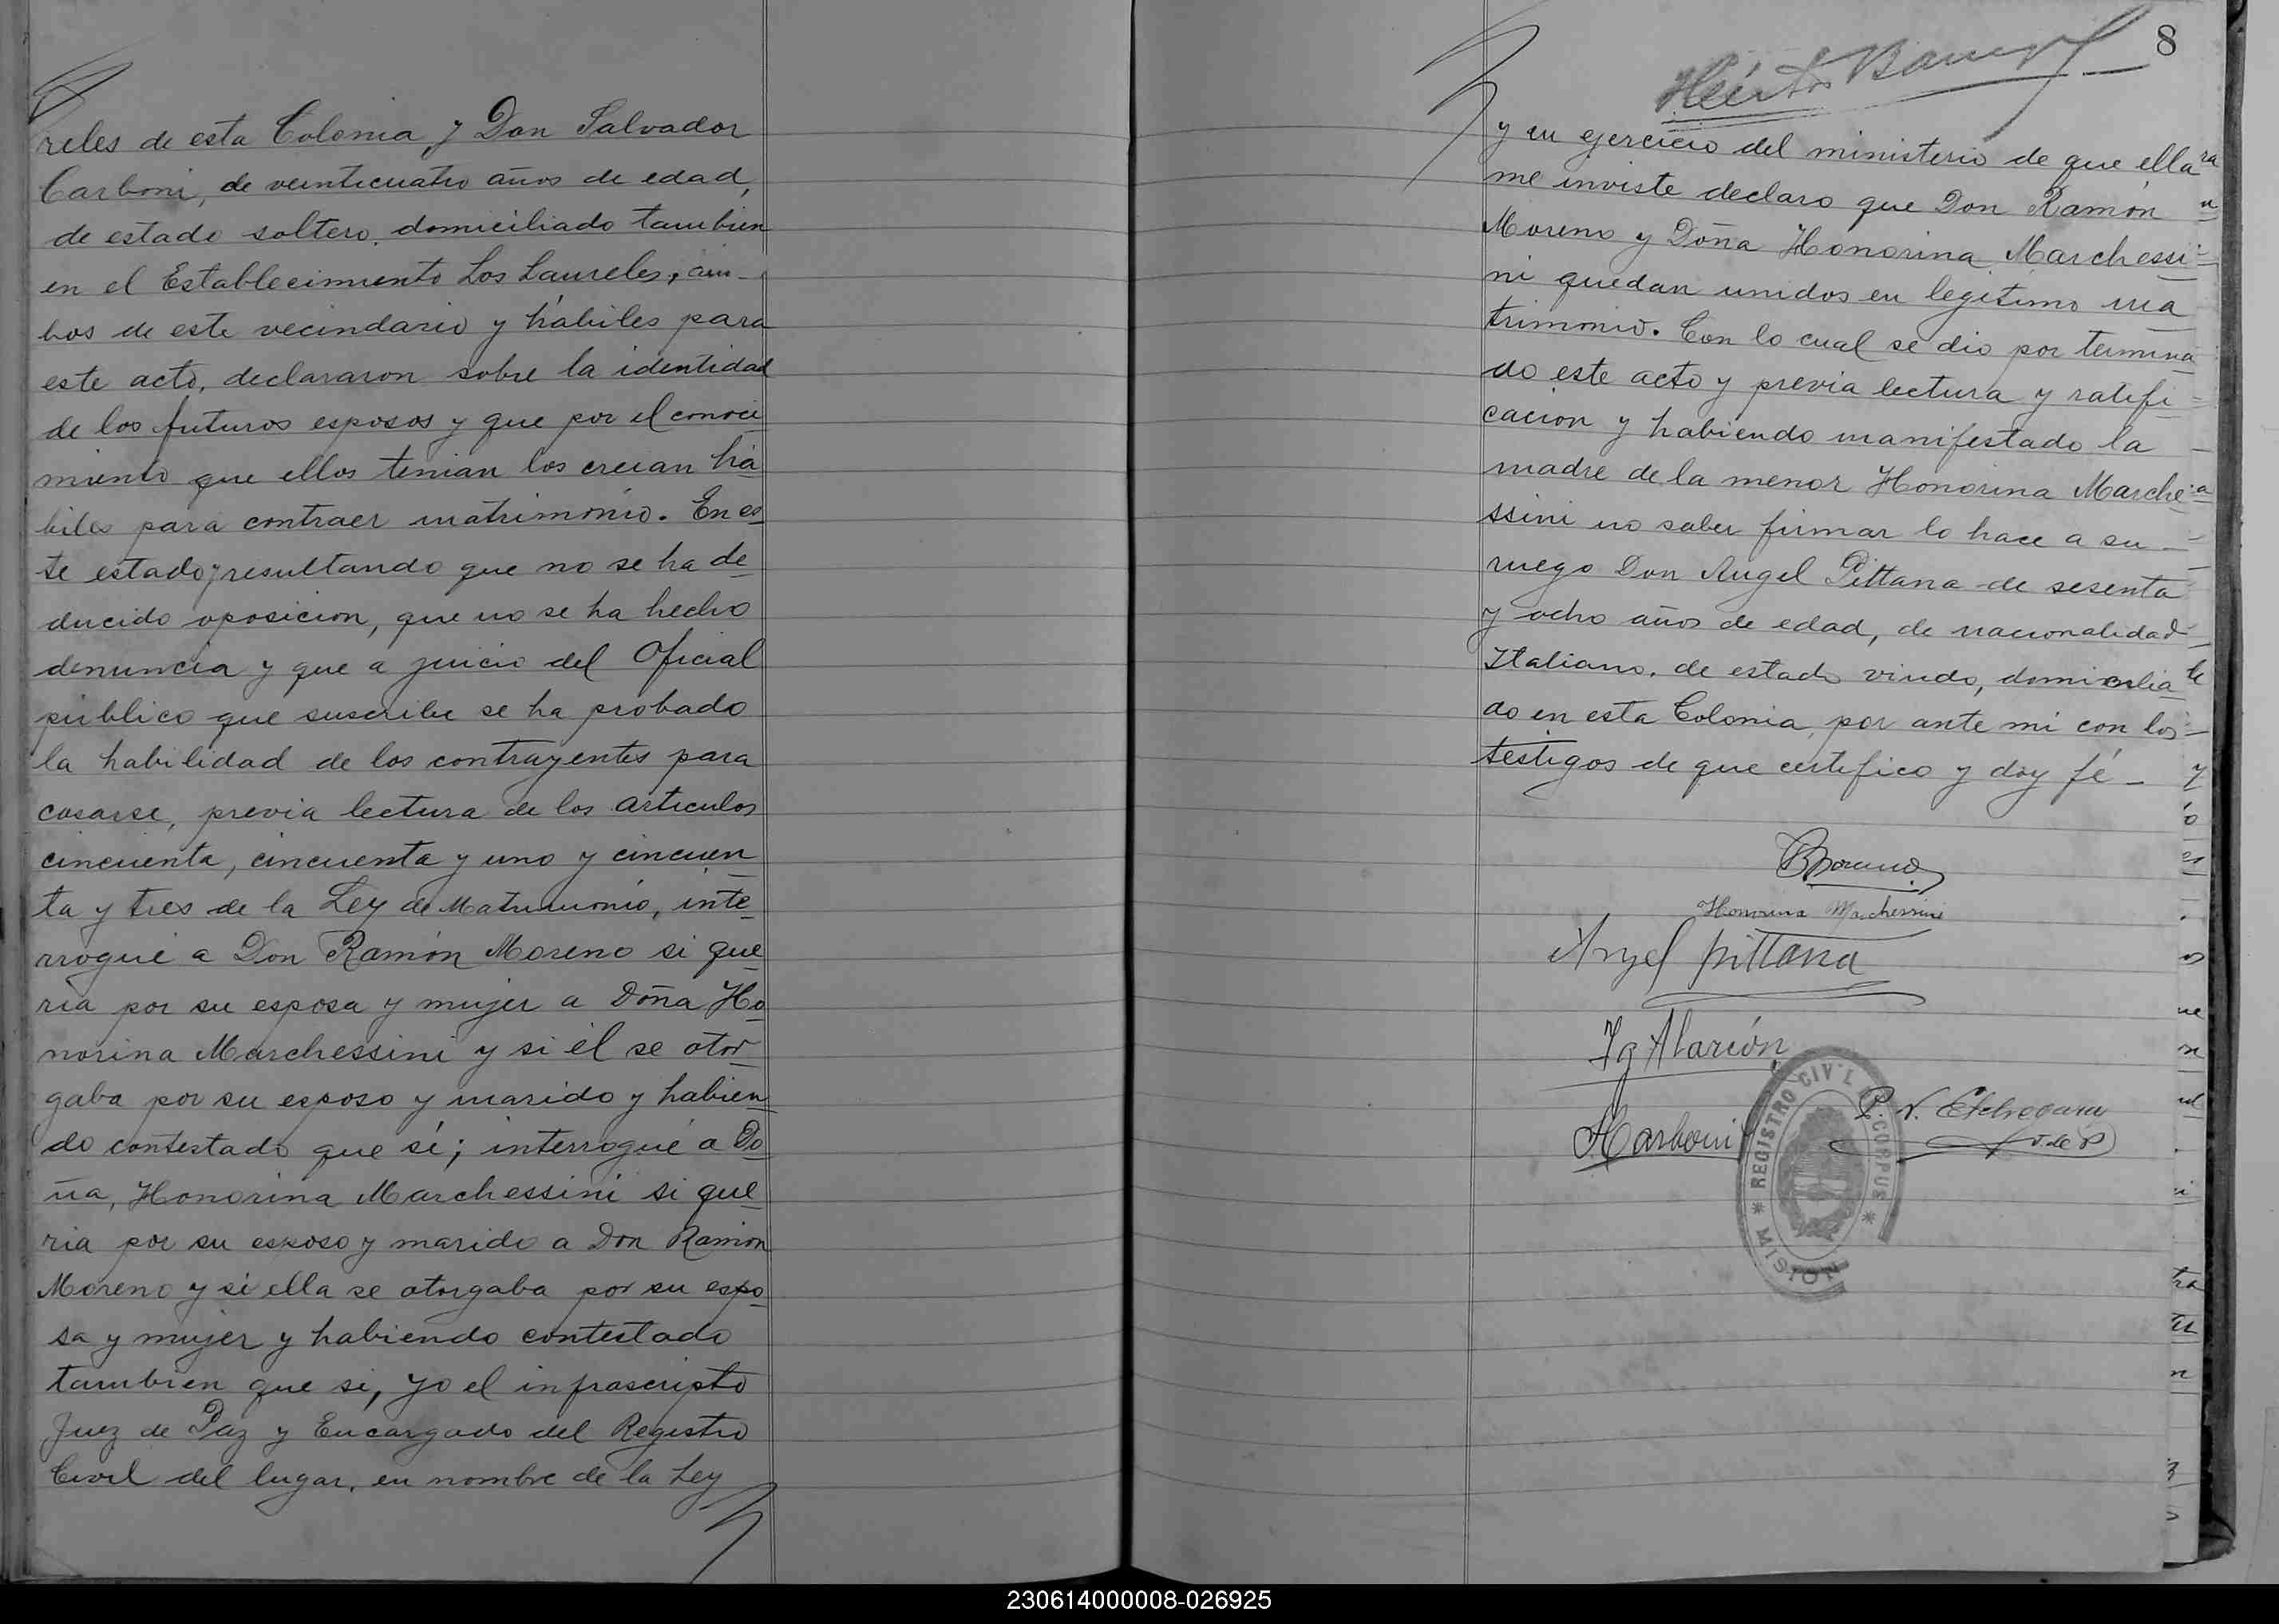 reles de esta Colonia y Don Salvador
Carboni, de veinticuatro años de edad,
de estado soltero, domiciliado tambien
en el Establecimiento Los Laureles, am-
bos de este vecindario y hábiles para
este acto, declararon sobre la identidad
de los futuros esposos y que por el conoci
miento que ellos tenian los creian há
biles para contraer matrimónio. En es
te estado y resultando que no se ha de
ducido oposicion, que no se ha hecho
denuncia y que a juicio del Oficial
público que suscribe se ha probado
la habilidad de los contrayentes para
casarse, previa lectura de los articulos
cincuenta, cincuenta y uno y cincuen
ta y tres de la Ley de Matrimonio, inte
rrogué a Don Ramón Moreno si que
ria por su esposa y mujer a Doña Ho
norina Marchessini y si él se otor
gaba por su esposo y marido y habien
do contestado que sí; interrogué a Do
ña, Honorina Marchessini si que
ria por su esposo y marido a Don Ramón
Moreno y si ella se otorgaba por su espo
sa y mujer y habiendo contestado
tambien que si, yo el infrascripto
Juez de Paz y Encargado del Registro
Civil del lugar, en nombre de la Ley
8
y en ejercicio del ministerio de que ella
me inviste declaro que Don Ramón
Moreno y Doña Honorina Marchessi
ni quedan unidos en legitimo ma
trimonio. Con lo cual se dio por termina
do este acto y previa lectura y ratifi
cacion y habiendo manifestado la
madre de la menor Honorina Marche
ssini no saber firmar lo hace a su
ruego Don Angel Pittana de sesenta
y ocho años de edad, de nacionalidad
Italiano, de estado viudo, domicilia
do en esta Colonia, por ante mi con los
testigos de que certifico y doy fé -
Honorina Marchessini
Angel Pittana
Ig Alarcón
Carboni
REGISTRO CIVIL
CORPUS
MISION
J. de P
230614000008-026925